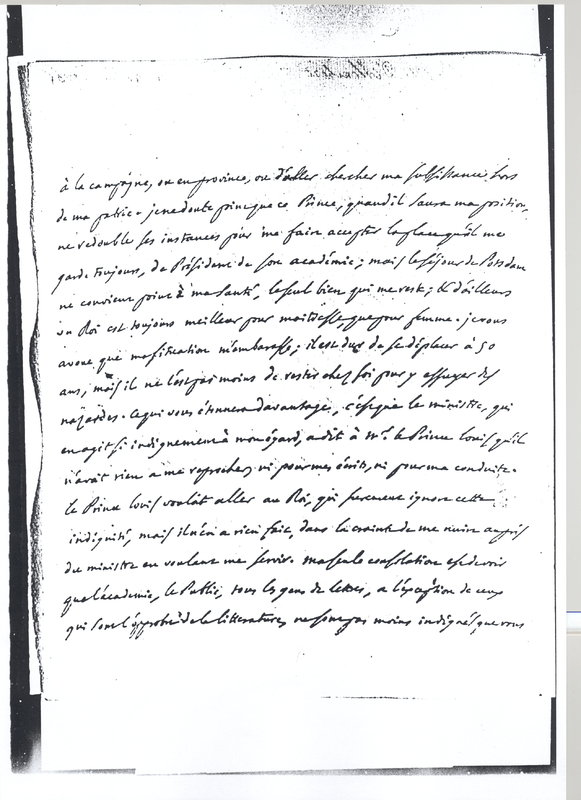 à la campagne, ou en province, ou d'aller chercher ma subsistance hors
de ma patrie. je ne doute point que ce Prince, quand il saura ma position,
ne redouble ses instances pour me faire accepter la place qu'il me
garde toujours, de Président de son académie; mais le séjour de Potsdam
ne convient point à ma santé, le seul bien qui me reste; & d'ailleurs
un Roi est toujours meilleur pour maitresse, que pour femme. je vous
avoue que ma situation m'embarasse; il est dur de se déplacer à 50
ans, mais il ne l'est pas moins de rester chez soi pour y essuyer des
nazardes. ce qui vous étonnera davantage, c'est que le ministre, qui
en agit si indignement à mon égard, a dit à Mr. le Prince Louis qu'il
n'avoit rien a me reprocher, ni pour mes écrits, ni pour ma conduite.
le Prince Louis vouloit aller au Roi, qui surement ignore cette
indignité, mais il n'en a rien fait, dans la crainte de me nuire auprès
du ministre en voulant me servir. ma seule consolation est de voir
que l'académie, le Public, tous les gens de lettres, a l'exception de ceux
qui sont l'opprobre de la litterature, ne sont pas moins indignés que vous